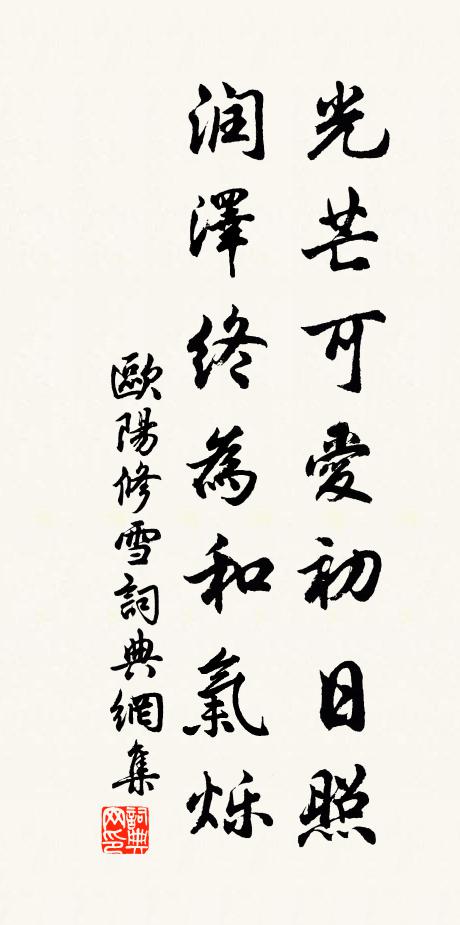 光芒可愛初日照
润澤終為和氣烁
歐陽修雪詞典網集
詞典网印